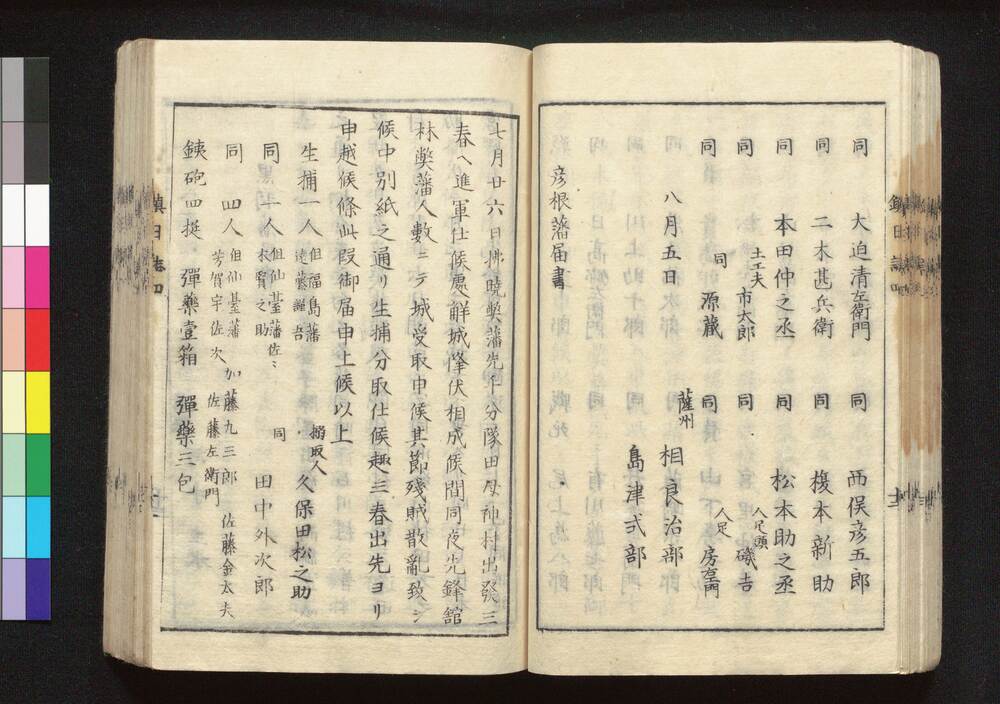 同　大迫清左衛門　同　西俣彦五郎
同　二木甚兵衛　同　榎本新助
同　本田仲之丞　同　松本助之丞
土工夫　市太郎　人足頭　磯吉
同　同　源蔵　同　人足　房右衛門
八月五日　薩州　相良治部
島津式部
彦根藩届書
七月廿六日拂曉弊藩先手分隊田母神村出發三
春ヘ進軍仕候處解城降伏相成候間同夜先鋒舘
林弊藩人數ニテ城受取申候其節殘賊散亂致シ
候中別紙之通リ生捕分取仕候趣三春出先ヨリ
申越候條此段御届申上候以上
生捕一人　但福島藩遠藤謙吾　搦取人　久保田松之助
同　一人　但仙臺藩佐々木賢之助　同　田中外次郎
同　四人　但仙臺藩芳賀宇佐次　加藤九三郎　佐藤左衛門　佐藤金太夫
銕砲四挺　彈藥壹箱　彈藥三包
鎮日誌四